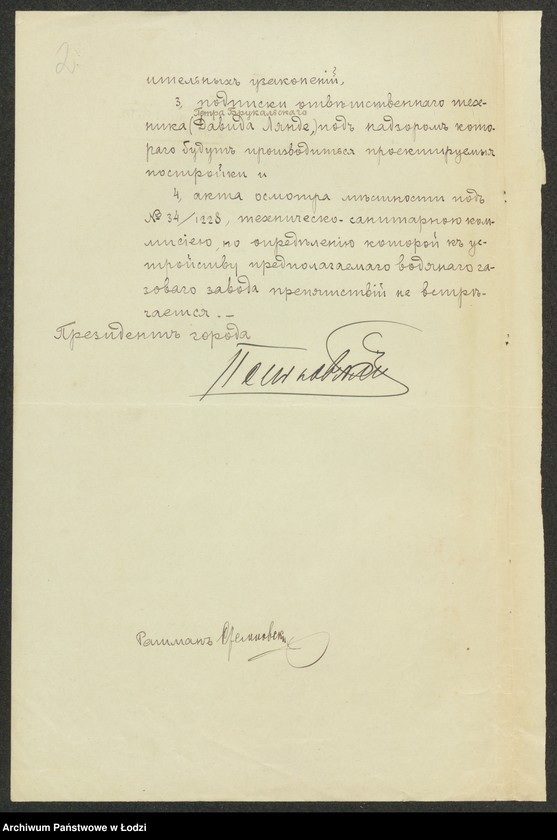 2.
ительныхъ узаконеній,
3, подписки отвѣтственнаго тех-
Петра Брукальскаго
ника (Давида Лянде,) подъ надзоромъ кото-
раго будутъ производиться проектируемыя
постройки и
4, акта осмотра мѣстности подъ
№ 34/1228, техническо-санитарною ком-
мисіею, по опредѣленію которой къ ус-
тройству предполагаемаго водянаго га-
зоваго завода препятствій не встрѣ-
чается. –
Президентъ города
Ратманъ
Archiwum Państwowe w Łodzi